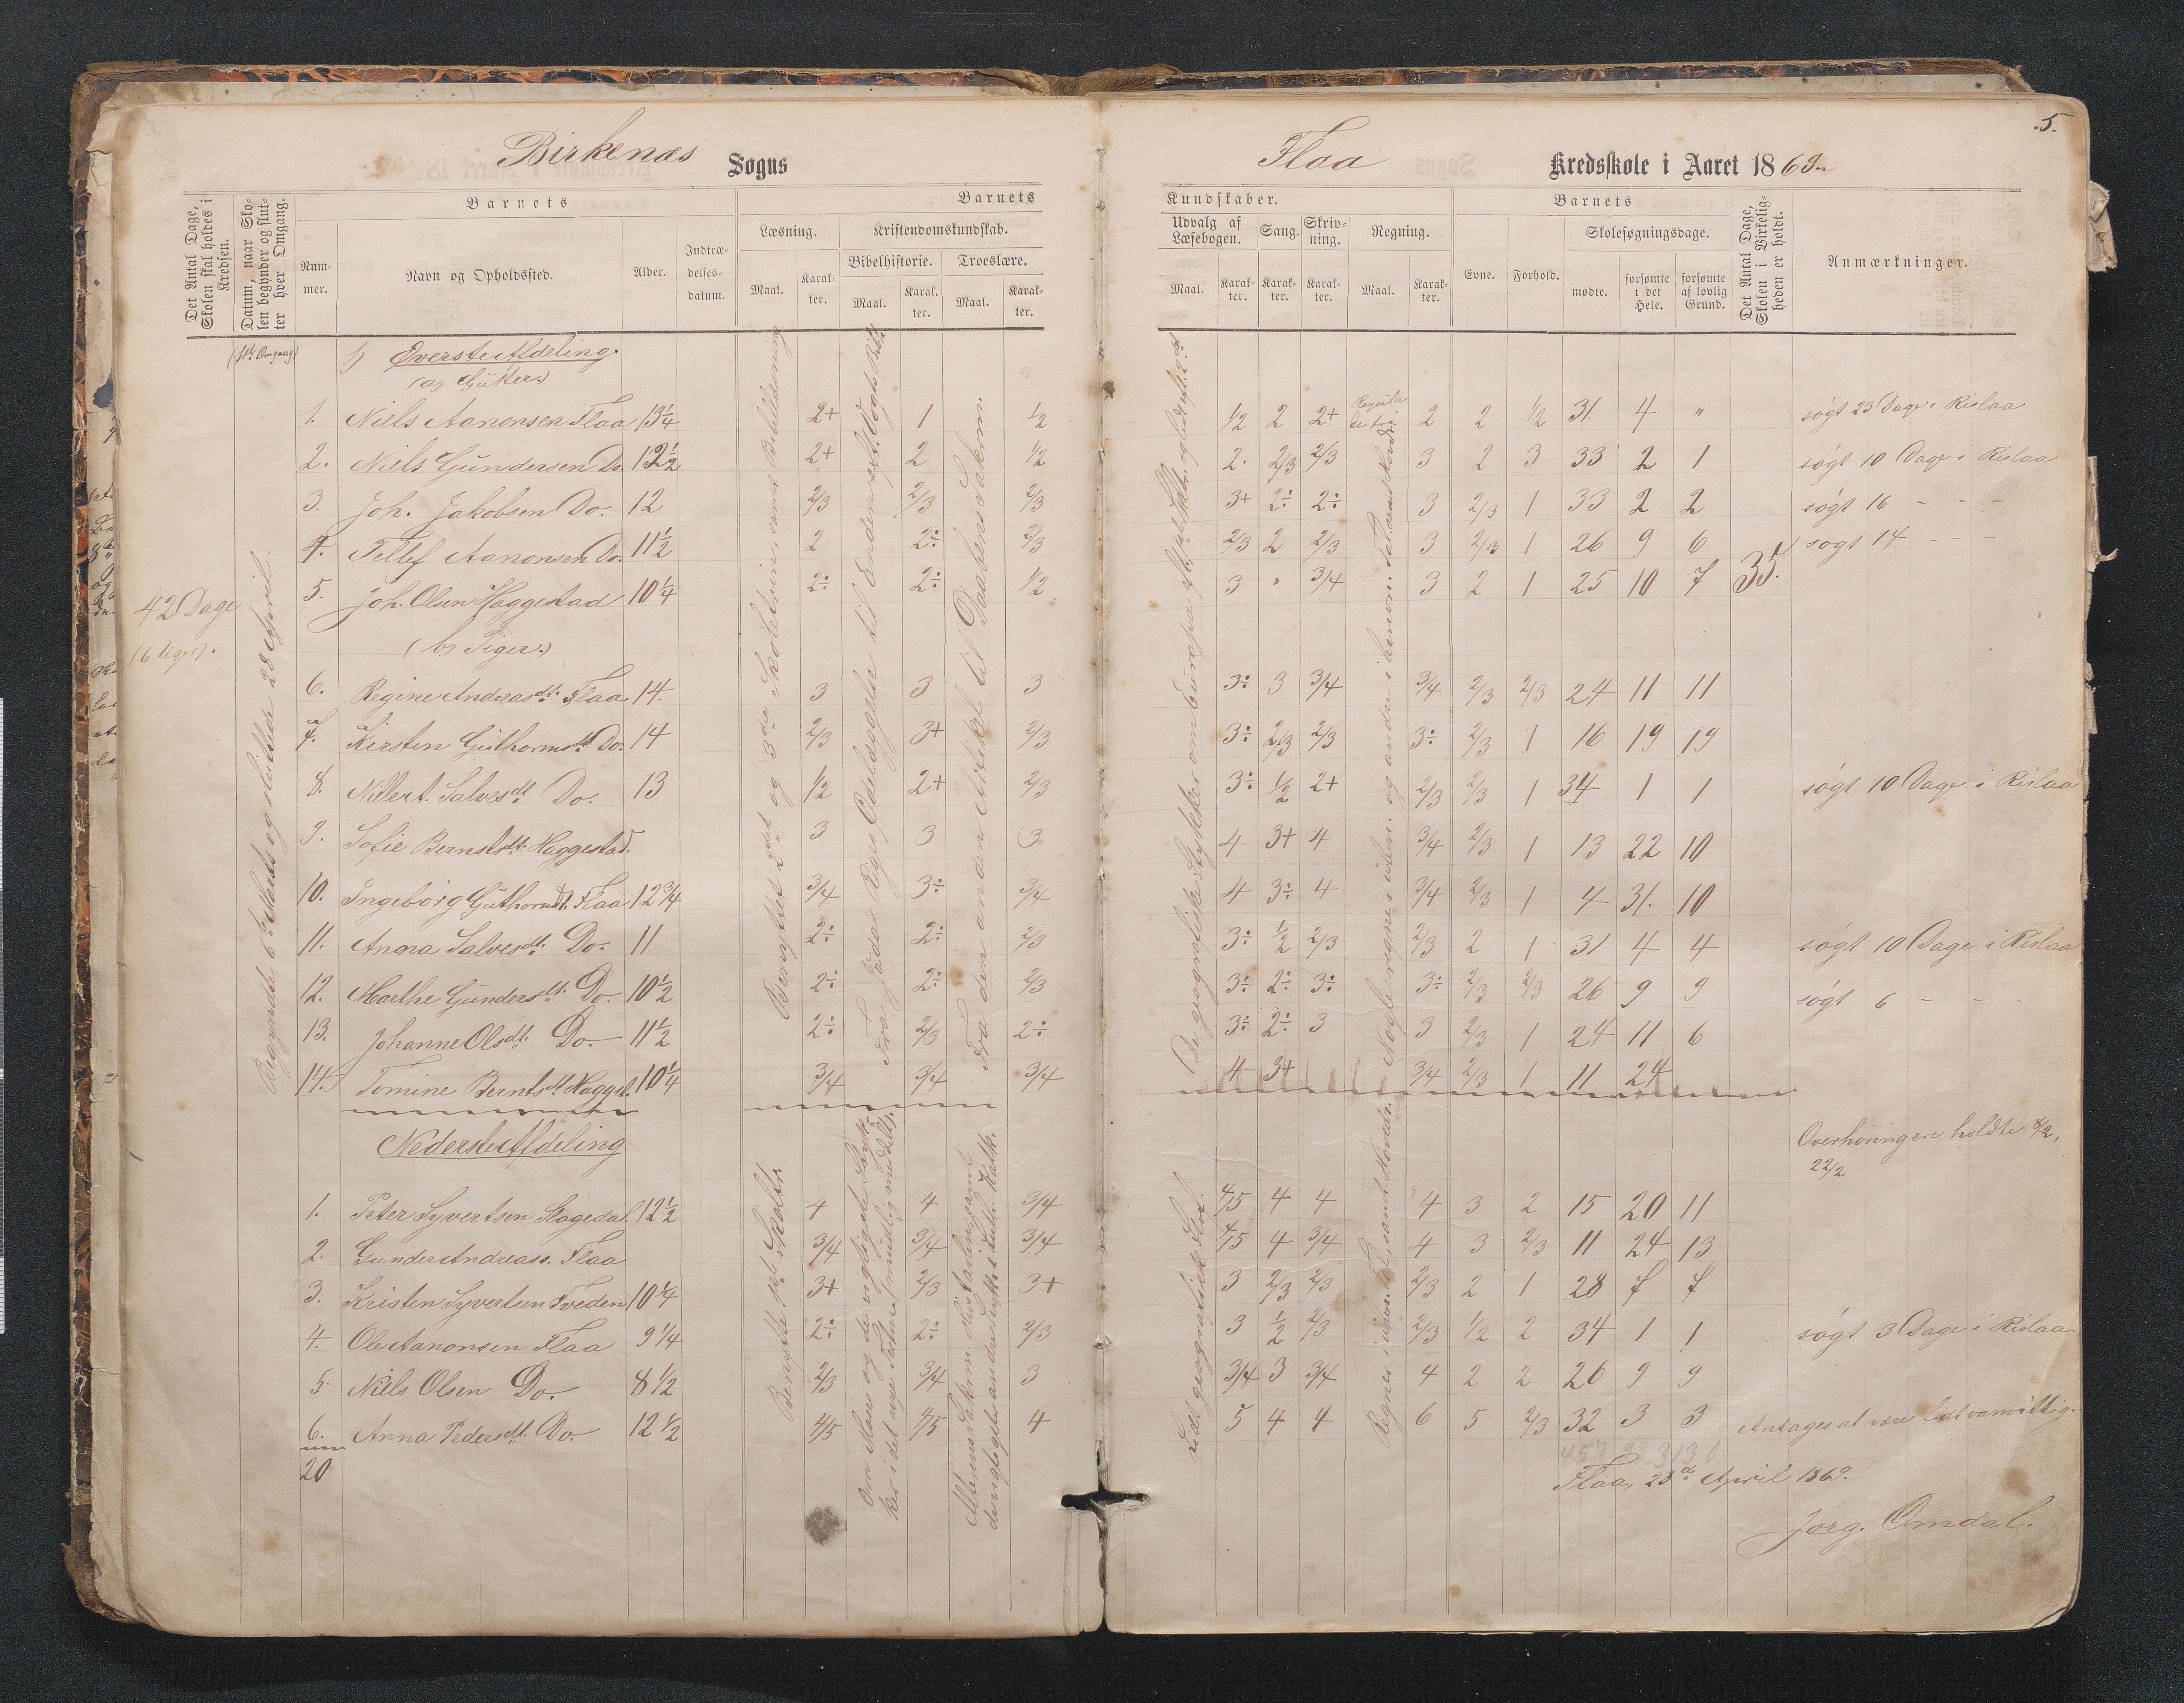 5.
Birkenæs Sogns
Flaa Kredsskole i Aaret 1869
Det Antal Dage, Skolen skal holdes i Kredsen.
Datum, naar Skolen begynder og slutter hver Omgang.
Barnets
Nummer.
Navn og Opholdssted.
Alder.
Indtrædelsesdatum.
Barnets
Læsning.
Maal.
Karakter.
Kristendomskundskab.
Bibelhistorie.
Maal.
Karakter.
Troeslære.
Maal.
Karakter.
Kundskaber.
Udvalg af Læsebogen.
Maal.
Karakter.
Sang.
Karakter.
Skrivning.
Karakter.
Regning.
Maal.
Karakter.
Barnets
Evne.
Forhold.
Skolesøgningsdage.
mødte.
forsømte i det Hele.
forsømte af lovlig Grund.
Det Antal Dage, Skolen i Virkeligheden er holdt.
Anmærkninger.
1) Øverste Afdeling.
(a) Gutter.)
1. Niels Aanonsen Flaa 13 1/4 2+ 1 1/2 1/2 2 2+ 2 2 1/2 31. 4 " søgt 23 Dage i Rislaa
2. Niels Gundersen Do. 12 1/2 2+ 2 1/2 2. 2/3 2/3 3 2 3 33 2 1 søgt 10 Dage i Rislaa
3. Joh. Jakobsen Do. 12 2/3 2/3 2/3 3+ 2÷ 2÷ 3 2/3 1 33 2 2 søgt 16 - - -
4. Tellef Aanonsen Do. 11 1/2 2 2÷ 2/3 2/3 2 2/3 3 2/3 1 26 9 6 søgt 14 - - -
5. Joh. Olsen Haggestad 10 1/4 2÷ 2÷ 1/2 3 " 3/4 3 2 1 25 10 7 35.
42 Dage
(6 Uger).
Begyndte 6te Marts og sluttede 28 April.
(b) Piger.)
6. Regine Andreasdt. Flaa 14. 3 3 3 3÷ 3 3/4 3/4 2/3 2/3 24 11 11
7. Kirsten Guthormsdt. Do. 14 2/3 3+ 2/3 3÷ 2/3 2/3 3÷ 2/3 1 16 19 19
8. Nillert. Salvesdt. Do. 13 1/2 2+ 2/3 3÷ 1/2 2+ 2/3 2/3 1 34 1 1 søgt 10 Dage i Rislaa
9. Sofie Berntsdt. Haggestad. 3 3 3 4 3+ 4 3/4 2/3 1 13 22 10
10. Ingeborg Guthormsdt. Flaa 12 3/4 3/4 3÷ 3/4 4 3÷ 4 3/4 2/3 1 4 31. 10
11. Anna Salvesdt. Do. 11 2÷ 2÷ 2/3 3÷ 1/2 2/3 2/3 2 1 31 4 4 søgt 10 Dage i Rislaa
12. Marthe Gundersdt. Do. 10 1/2 2÷ 2÷ 2/3 3÷ 2÷ 3÷ 3÷ 2/3 2/3 26 9 9 søgt 6 - - -
13. Johanne Olsdt. Do. 11 1/2 2÷ 2/3 2÷ 3÷ 2÷ 3 3 2/3 1 24 11 6
14. Tomine Berntsdt. Haggst. 10 1/4 3/4 3/4 3/4 4 3+ 3/4 2/3 1 11 24
Nederste Afdeling
Overhøringen holdte 8/2, 22/2
1. Peter Syvertsen Slogedal. 12 1/2 4 4 3/4 4/5 4 4 4 3 2 15 20 11
2. Gunder Andreass. Flaa 3/4 3/4 3/4 4/5 4 3/4 4 3 2/3 11 24 13
3. Kristen Syvertsen Tveden 10 1/4 3+ 2/3 3+ 3 2/3 2/3 2/3 2 1 28 7 7
4. Ole Aanonsen Flaa 9 1/4 2÷ 2÷ 2/3 3 1/2 2/3 2/3 1/2 2 34 1 1 søgt 3 Dage i Rislaa
5. Niels Olsen Do. 8 1/2 2/3 3/4 3 3/4 3 3/4 4 2 2 26 9 9
6. Anna Pedersdt. Do. 12 1/2 4/5 4/5 4 5 4 4 6 5 2/3 32 3 3 Antages at være lidt vanvittig.
20
Flaa, 28de April 1869.
Jørg. Omdal.